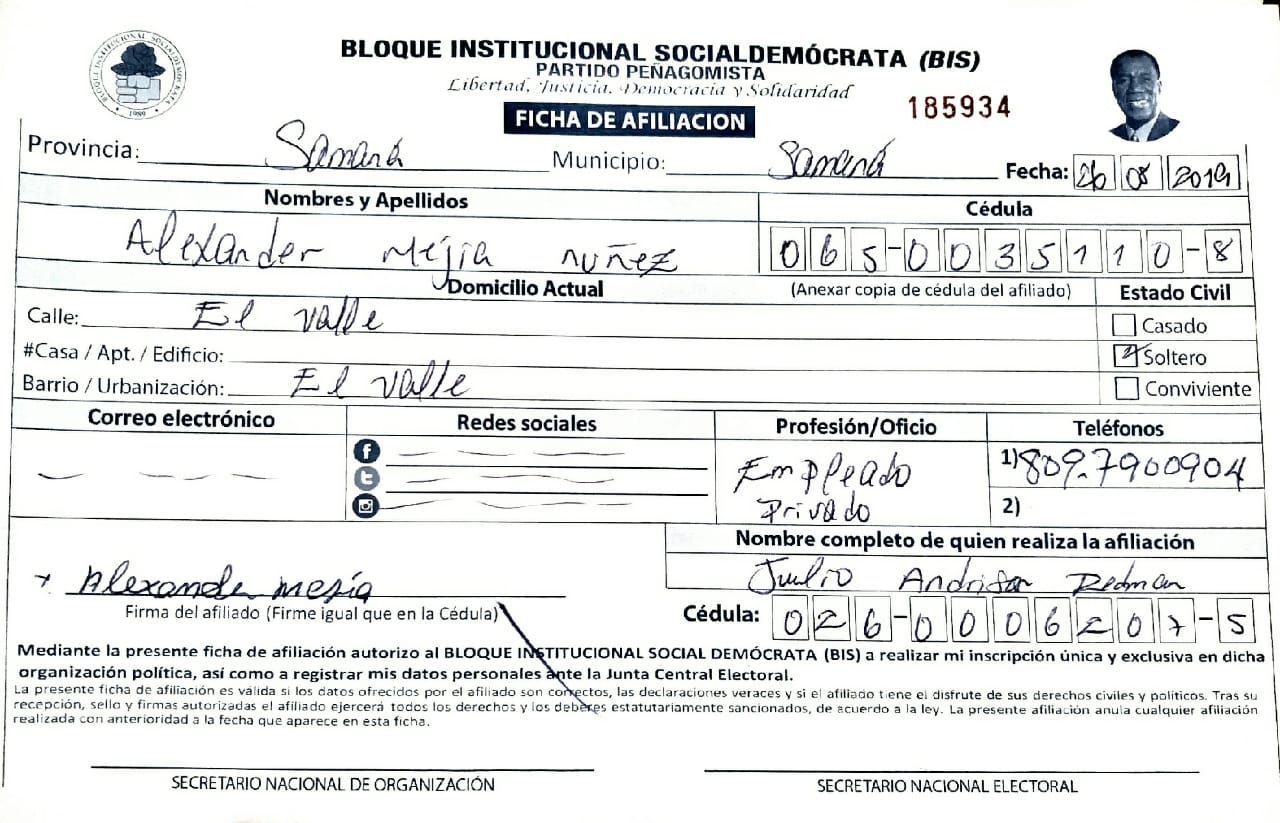 BLOQUE INSTITUCIONAL SOCIALDEMÓCRATA (BIS)
PARTIDO PEÑAGOMISTA
Libertad, Justicia, Democracia y Solidaridad
BLOQUE INSTITUCIONAL SOCIALDEMOCRATA
1989
185934
FICHA DE AFILIACION
Provincia: Samaná Municipio: Samaná Fecha: 26 08 2019
Nombres y Apellidos Cédula
Alexander Mejia nuñez 065-0035110-8
Domicilio Actual (Anexar copia de cédula del afiliado) Estado Civil
Calle: El valle Casado
#Casa / Apt. / Edificio: Soltero
Barrio / Urbanización: El valle Conviviente
Correo electrónico Redes sociales Profesión/Oficio Teléfonos
Empleado 1) 809.7900904
Privado 2)
Nombre completo de quien realiza la afiliación
Julio Redman
Alexande mesia
Firma del afiliado (Firme igual que en la Cédula) Cédula: 026-0006207-5
Mediante la presente ficha de afiliación autorizo al BLOQUE INSTITUCIONAL SOCIAL DEMÓCRATA (BIS) a realizar mi inscripción única y exclusiva en dicha
organización política, así como a registrar mis datos personales ante la Junta Central Electoral.
La presente ficha de afiliación es válida si los datos ofrecidos por el afiliado son correctos, las declaraciones veraces y si el afiliado tiene el disfrute de sus derechos civiles y políticos. Tras su
recepción, sello y firmas autorizadas el afiliado ejercerá todos los derechos y los deberes estatutariamente sancionados, de acuerdo a la ley. La presente afiliación anula cualquier afiliación
realizada con anterioridad a la fecha que aparece en esta ficha.
SECRETARIO NACIONAL DE ORGANIZACIÓN SECRETARIO NACIONAL ELECTORAL